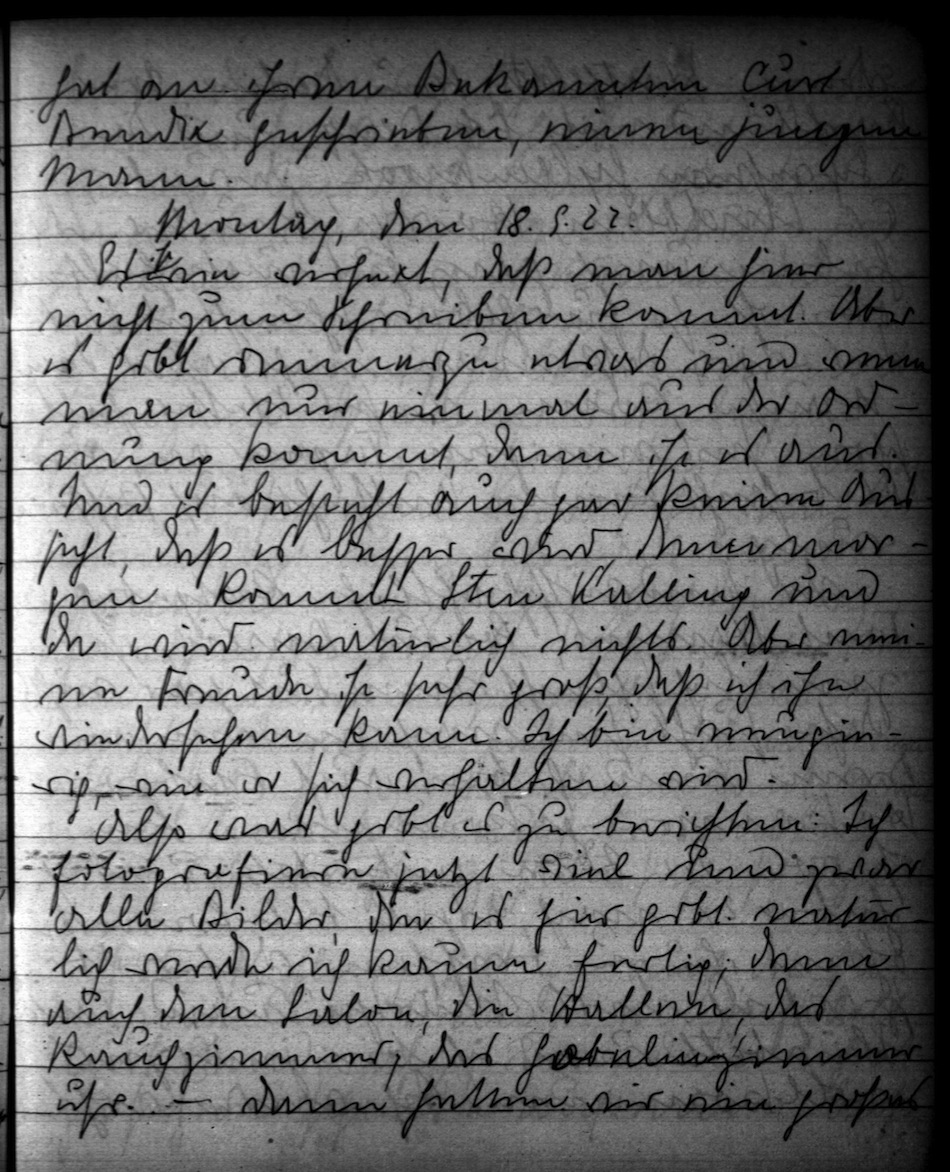 hat an ihren Bekannten Curt
Bendix geschrieben, einen jungen
Mann.
Montag, den 18. 9. 22.
Es ist wie verhext, daß man hier
nicht zum Schreiben kommt. Aber
es gibt immerzu etwas und wenn
man nur einmal aus der Ord-
nung kommt, dann ist es aus.
Und es besteht auch gar keine Aus-
sicht, daß es besser wird, denn mor-
gen kommt Sten Kalling und
da wird natürlich nichts. Aber mei-
ne Freude ist sehr groß, daß ich ihn
wiedersehen kann. Ich bin neugie-
rig, wie er sich verhalten wird.
Also was gibt es zu berichten: Ich
fotografiere jetzt viel und zwar
alle Bilder, die es hier gibt. Natür-
lich werde ich kaum fertig; denn
auch den Salon, die Hallen, das
Rauchzimmer, das Gobelinzimmer
usw. — Dann hatten wir ein großes